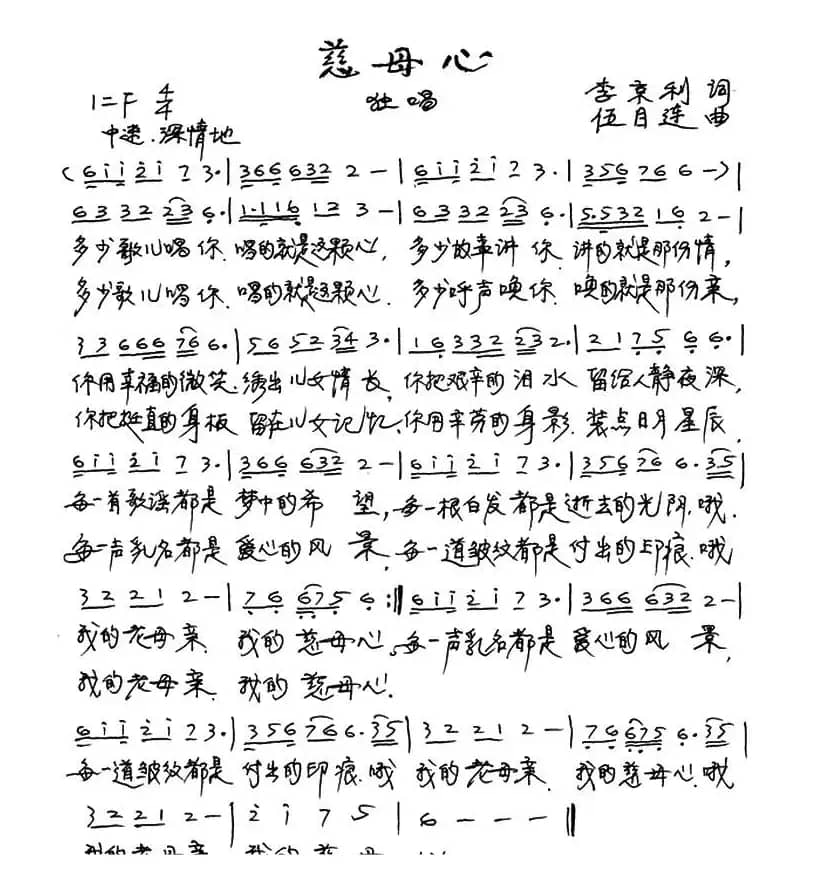 慈母心
1=F 4/4 独唱 李京利 词
中速.深情地 伍月连 曲
(6 1 1 2 1 7 3·|3 6 6 6 3 2 2 —|6 1 1 2 1 7 3·|3 5 6 7 6 6 —)|
6 3 3 2 2 3 6·|1·1 1 6 1 2 3 —|6 3 3 2 2 3 6·|5·5 3 2 1 6 2 —|
多少歌儿唱你.唱的就是这颗心,多少故事讲你.讲的就是那份情,
多少歌儿唱你.唱的就是这颗心.多少呼声唤你.唤的就是那份亲,
3 3 6 6 6 7 6 6·|5 6 5 2 3 4 3·|1 6 3 3 2 2 3 2·|2 1 7 5 6 6·|
你用幸福的微笑.绣出儿女情长,你把艰辛的泪水留给人静夜深,
你把挺直的身板留在儿女记忆,你用辛劳的身影.装点日月星辰.
6 1 1 2 1 7 3·|3 6 6 6 3 2 2 —|6 1 1 2 1 7 3·|3 5 6 7 6 6·3 5|
每一首歌谣都是梦中的希望,每一根白发都是逝去的光阴.哦.
每一声乳名都是爱心的风景,每一道皱纹都是付出的印痕.哦
3 2 2 1 2 —|7 6 6 7 5 6·:‖6 1 1 2 1 7 3·|3 6 6 6 3 2 2 —|
我的老母亲.我的慈母心。每一声乳名都是爱心的风景,
我的老母亲.我的慈母心.
6 1 1 2 1 7 3·|3 5 6 7 6 6·3 5|3 2 2 1 2 —|7 6 6 7 5 6·3 5|
每一道皱纹都是付出的印痕.哦我的老母亲.我的慈母心.哦
3 2 2 1 2 —|2 1 7 5|6 — — —‖
我的老母亲.我的慈母